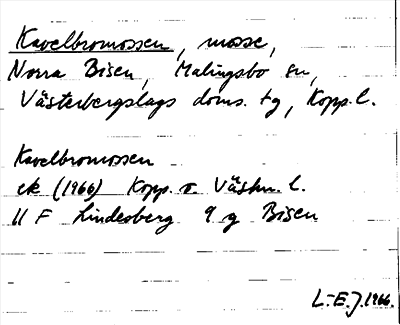 Kavelbromossen, mosse,
Norra Bisen, Malingsbo sn,
Västerbergslags doms. tg, Kopp. l.
Kavelbromossen
ek (1966) Kopp. o. Västm. l.
11 F Lindesberg 9 g Bisen
L-E.J. 1966.